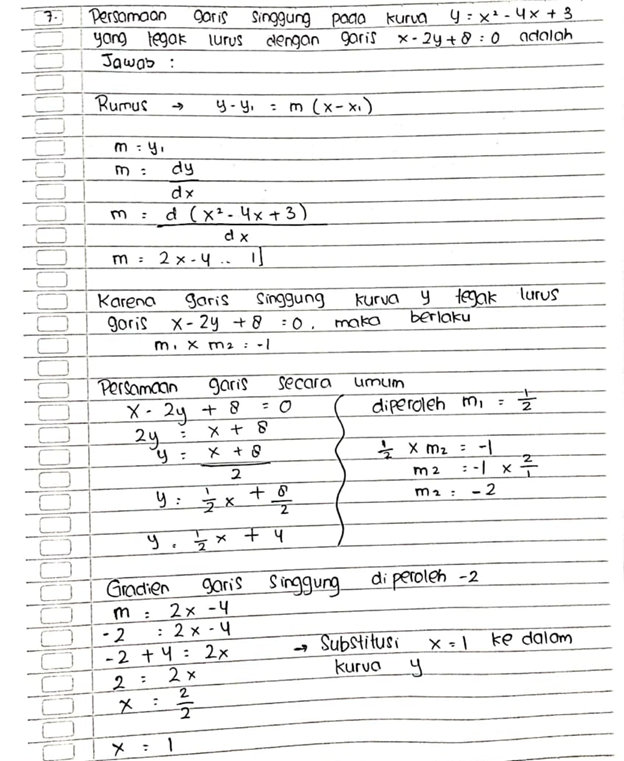 7. Persamaan garis singgung pada kurva y = x² - 4x + 3
yang tegak lurus dengan garis x - 2y + 8 = 0 adalah
Jawab :
Rumus → y - y₁ = m (x - x₁)
m = y₁
m = dy/dx
m = d (x² - 4x + 3)/dx
m = 2x - 4 .. 1]
Karena garis singgung kurva y tegak lurus
garis x - 2y + 8 = 0. maka berlaku
m₁ x m₂ = -1
Persamaan garis secara umum
x - 2y + 8 = 0
2y = x + 8
y = x + 8/2
y = 1/2 x + 8/2
y = 1/2 x + 4
diperoleh m₁ = 1/2
1/2 x m₂ = -1
m₂ = -1 x 2/1
m₂ = -2
Gradien garis singgung diperoleh -2
m = 2x - 4
-2 = 2x - 4
-2 + 4 = 2x
2 = 2x
x = 2/2
x = 1
→ Substitusi x = 1 ke dalam
kurva y